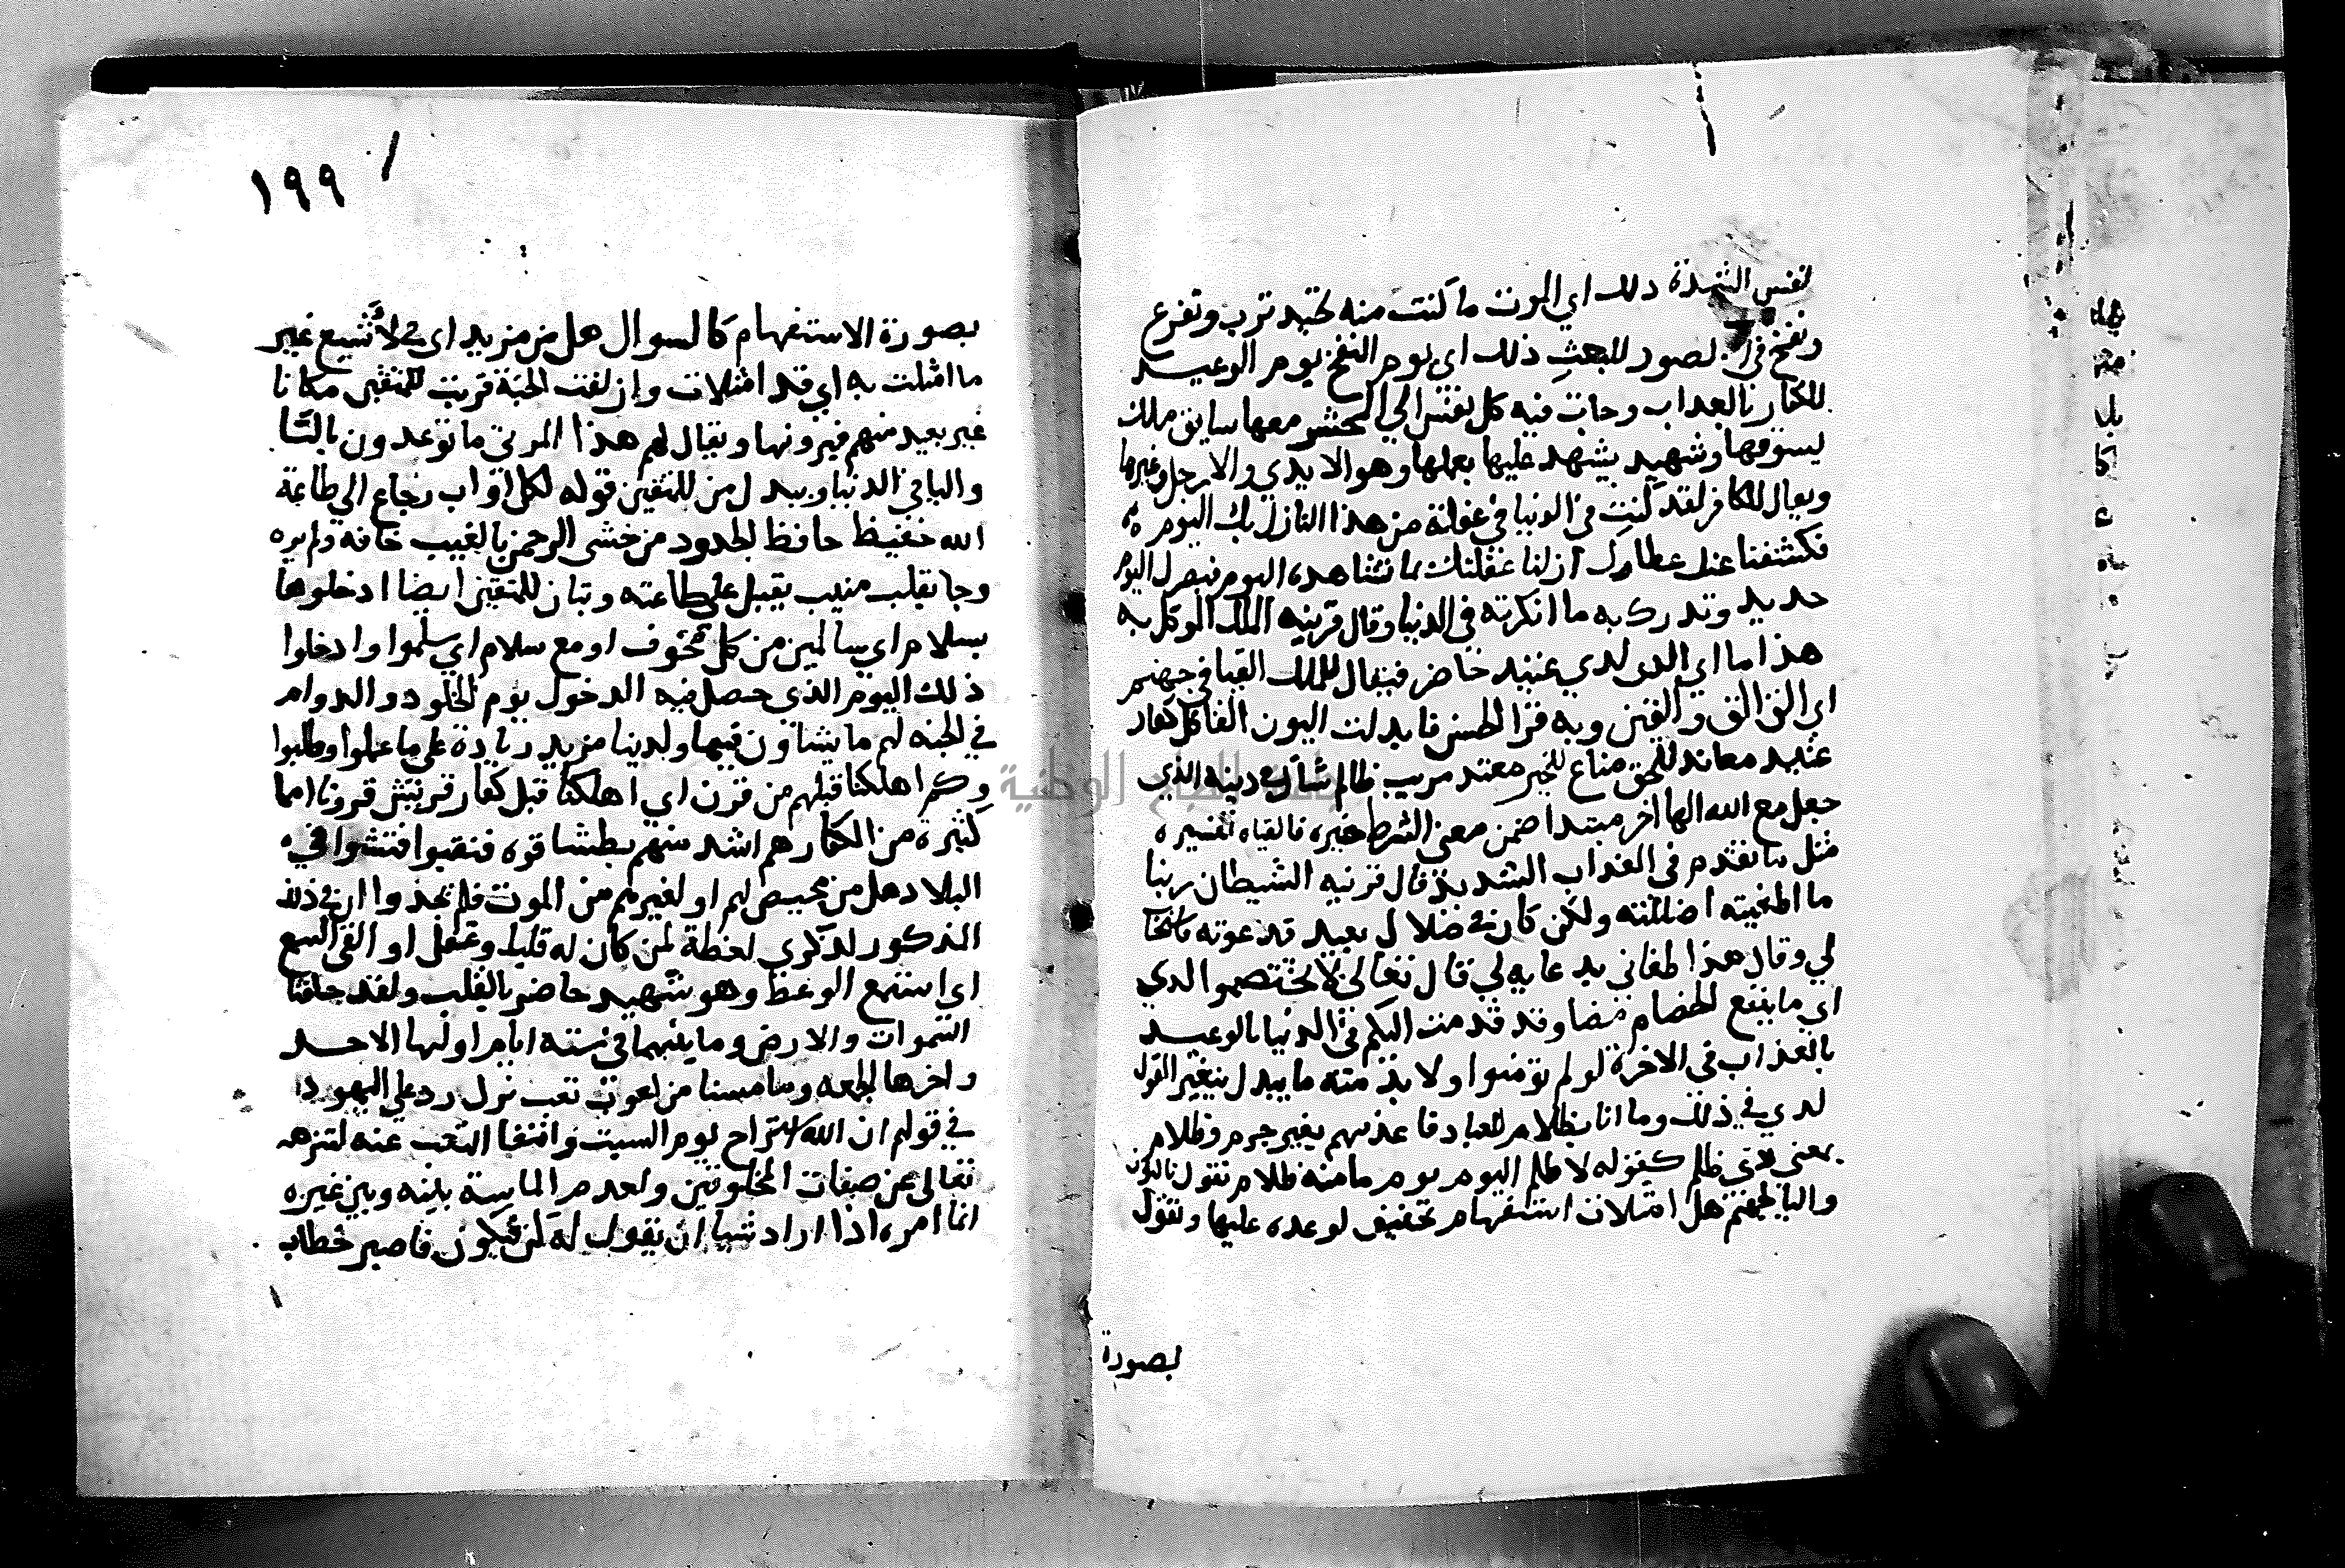 نفس الشدة ذلك اي الموت ما كنت منه تحيد تهرب وتفزع
ونفخ في الصور للبعث ذلك اي يوم النفخ يوم الوعيد
للكفار بالعداب وجات فيه كل نفس الي المحشر معها سايق ملك
يسوقها وشهيد يشهد عليها بعملها وهو الايدي والارجل وغيرها
ويقال للكافر لقد كنت في الدنيا في غفلة من هذا النازل بك اليوم
فكشفنا عنك غطاك ازلنا غفلتك بما تشاهده اليوم فبصرك اليوم
حديد وتدرك به ما انكرته في الدنيا وقال قرينه الملك الموكل به
هذا ما اي الدي لدي عتيد حاضر فيقال للملك القيا في جهنم
اي الق الق او القين وبه قرا الحسن فابدلت النون الفا كل كفار
عنيد معاند للحق مناع للخير معتد مريب ظالم شاك في دينه الذي
جعل مع الله الها اخر مبتدا ضمن معني الشرط خبره فالقياه تفسيره
مثل ما تقدم في العذاب الشديد قال قرينه الشيطان ربنا
ما اطغيته اضللته ولكن كان في ضلال بعيد قد عوته فاستجا
لي وقال هذا اطغاني بدعايه لي قال تعالي لا تختصموا لدي
اي ما ينفع الخصام هنا وقد قدمت اليكم في الدنيا بالوعيد
بالعذاب في الاخرة لو لم تؤمنوا ولا بد منه ما يبدل يتغير القول
لدي في ذلك وما انا بظلام للعباد فاعذبهم بغير جرم وظلام
بمعني ذي ظلم كقوله لا ظلم اليوم يوم ما منه ظلام نقول بالنون
واليا لجهنم هل امتلات استفهام تحقيق لوعده عليها وتقول
بصورة
١٩٩
بصورة الاستفهام كالسوال هل من مزيد اي في لا تسع غير
ما امتلت به اي قد امتلات وازلفت الجنة قربت للمتقين مكانا
غير بعيد منهم فيرونها ويقال لهم هذا المري ما توعدون بالتا
واليا في الدنيا ويبدل من للمتقين قوله لكل اواب رجاع الي طاعة
الله حفيظ حافظ لحدود من خشي الرحمن بالغيب خافه ولم يره
وجا بقلب منيب يقبل علي طاعته ويقال للمتقين ايضا ادخلوها
بسلام اي سالمين من كل مخوف او مع سلام اي سلموا وادخلوا
ذلك اليوم الذي حصل فيه الدخول يوم الخلود والدوام
في الجنه لهم ما يشاون فيها ولدينا مزيد زيادة علي ما عملوا وطلبوا
وكم اهلكنا قبلهم من قرن اي اهلكنا قبل كفار قريش قرونا امما
كثيرة من الكفار هم اشد منهم بطشا قوه فنقبوا فتشوا في
البلاد هل من محيص لهم او لغيرهم من الموت فلم يجدوا ان في ذلك
المذكور لذكري لعظة لمن كان له قلب وعقل او القي السمع
اي استمع الوعظ وهو شهيد حاضر بالقلب ولقد خلقنا
السموات والارض وما بينهما في ستة ايام اولها الاحد
واخرها الجمعه وما مسنا من لغوب تعب نزل ردا علي اليهود
في قولهم ان الله استراح يوم السبت وانتفا التعب عنه لتنزهه
تعالي عن صفات المخلوقين ولعدم المماسة بينه وبين غيره
انما امره اذا اراد شيا ان يقول له كن فيكون فاصبر خطاب